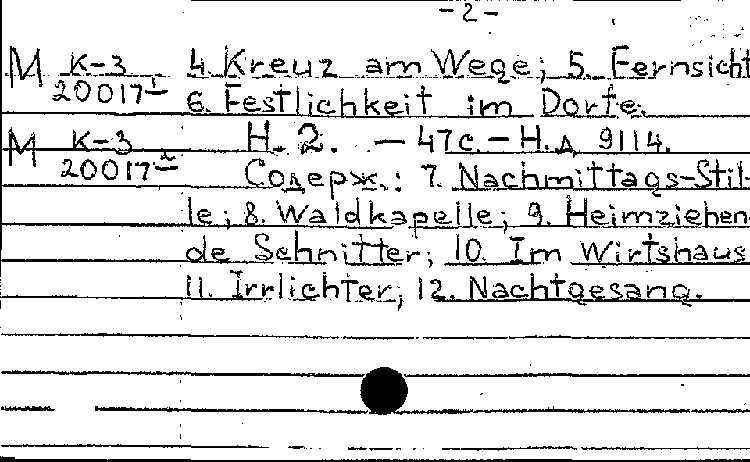 -2-
М К-3 4. Kreuz am Wege; 5. Fernsicht
20017 1 6. Festlichkeit im Dorfe.
М К-3 Н. 2. — 47с. — Н.д. 9114.
20017 2 Содерж.: 7. Nachmittags-Stil-
le; 8. Waldkapelle; 9. Heimziehen-
de Schnitter; 10. Im Wirtshaus
11. Irrlichter; 12. Nachtgesang.